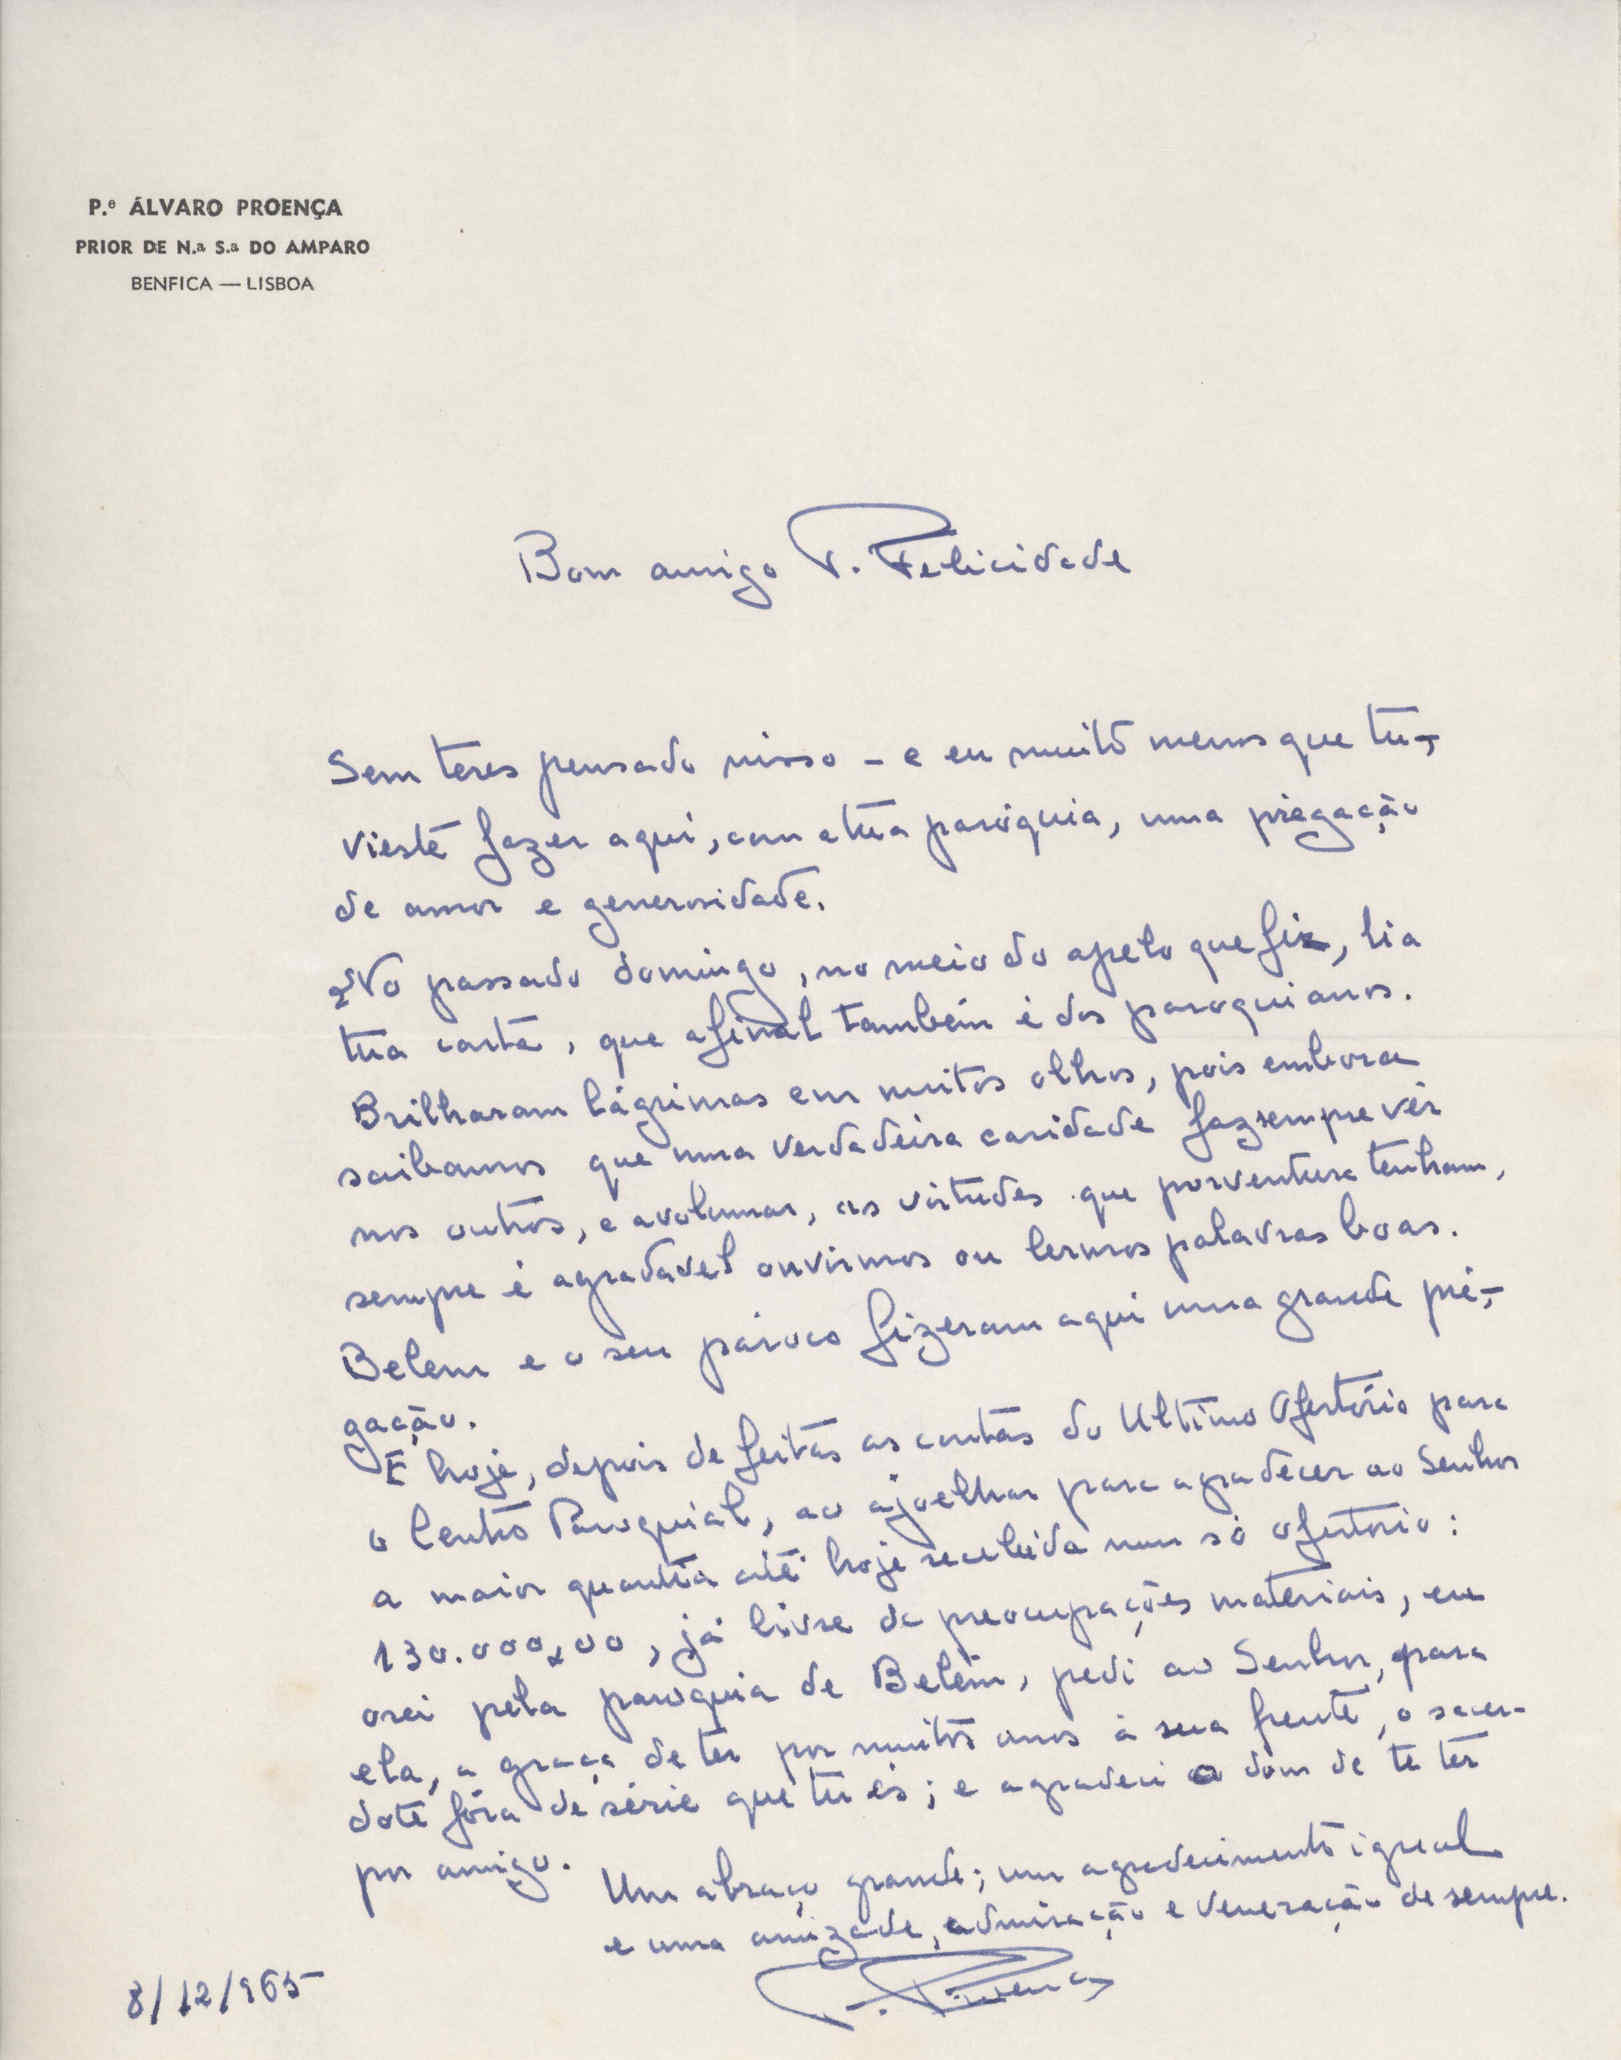 P.e ÁLVARO PROENÇA
PRIOR DE N.a S.a DO AMPARO
BENFICA — LISBOA
Bom amigo P. Felicidade
Sem teres pensado nisso – e eu muito menos que tu –,
vieste fazer aqui, com a tua paróquia, uma prègação
de amor e generosidade.
No passado domingo, no meio do apelo que fiz, li a
tua carta, que afinal também é dos paroquianos.
Brilharam lágrimas em muitos olhos, pois embora
saibamos que uma verdadeira caridade faz sempre vêr
nos outros, e avolumar, as virtudes que porventura tenham,
sempre é agradavel ouvirmos ou lermos palavras boas.
Belem e o seu pároco fizeram aqui uma grande prè-
gação.
E hoje, depois de feitas as contas do Ultimo Ofertório para
o Centro Paroquial, ao ajoelhar para agradecer ao Senhor
a maior quantia até hoje recebida num só ofertorio:
130.000,00, já livre de preocupações materiais, eu
orei pela paroquia de Belém, pedi ao Senhor, para
ela, a graça de ter por muitos anos à sua frente, o sacer-
dote fóra de série que tu és; e agradeci o dom de te ter
por amigo.
Um abraço grande; um agradecimento igual
e uma amizade, admiração e veneração de sempre.
P. Proença
8/12/965